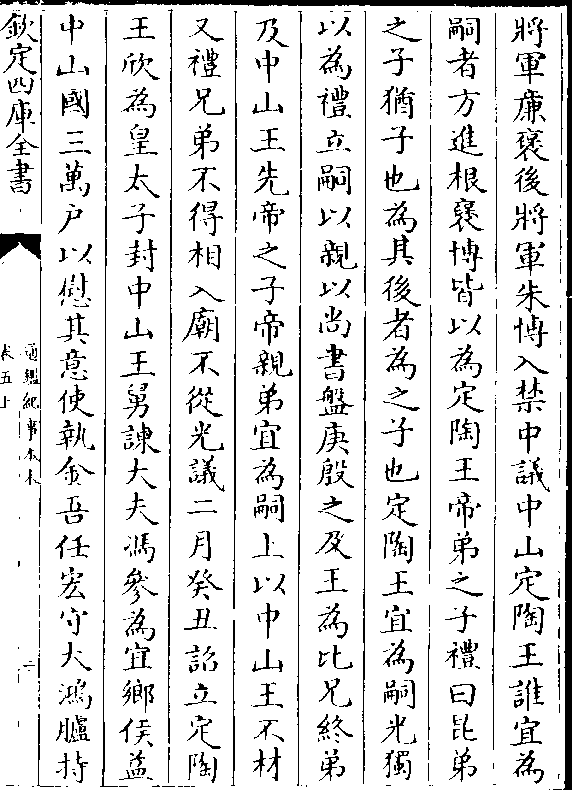 將軍廉褒後將軍朱博入禁中議中山定陶王誰宜為
嗣者方進根褒博皆以為定陶王帝弟之子禮曰昆弟
之子猶子也為其後者為之子也定陶王宜為嗣光獨
以為禮立嗣以親以尚書盤庚殷之及王為比兄終弟
及中山王先帝之子帝親弟宜為嗣上以中山王不材
又禮兄弟不得相入廟不從光議二月癸丑詔立定陶
王欣為皇太子封中山王舅諫大夫馮參為宜鄉侯益
中山國三萬戶以慰其意使執金吾任宏守大鴻臚持
欽定四庫全書
通鑑紀事本末
卷五上